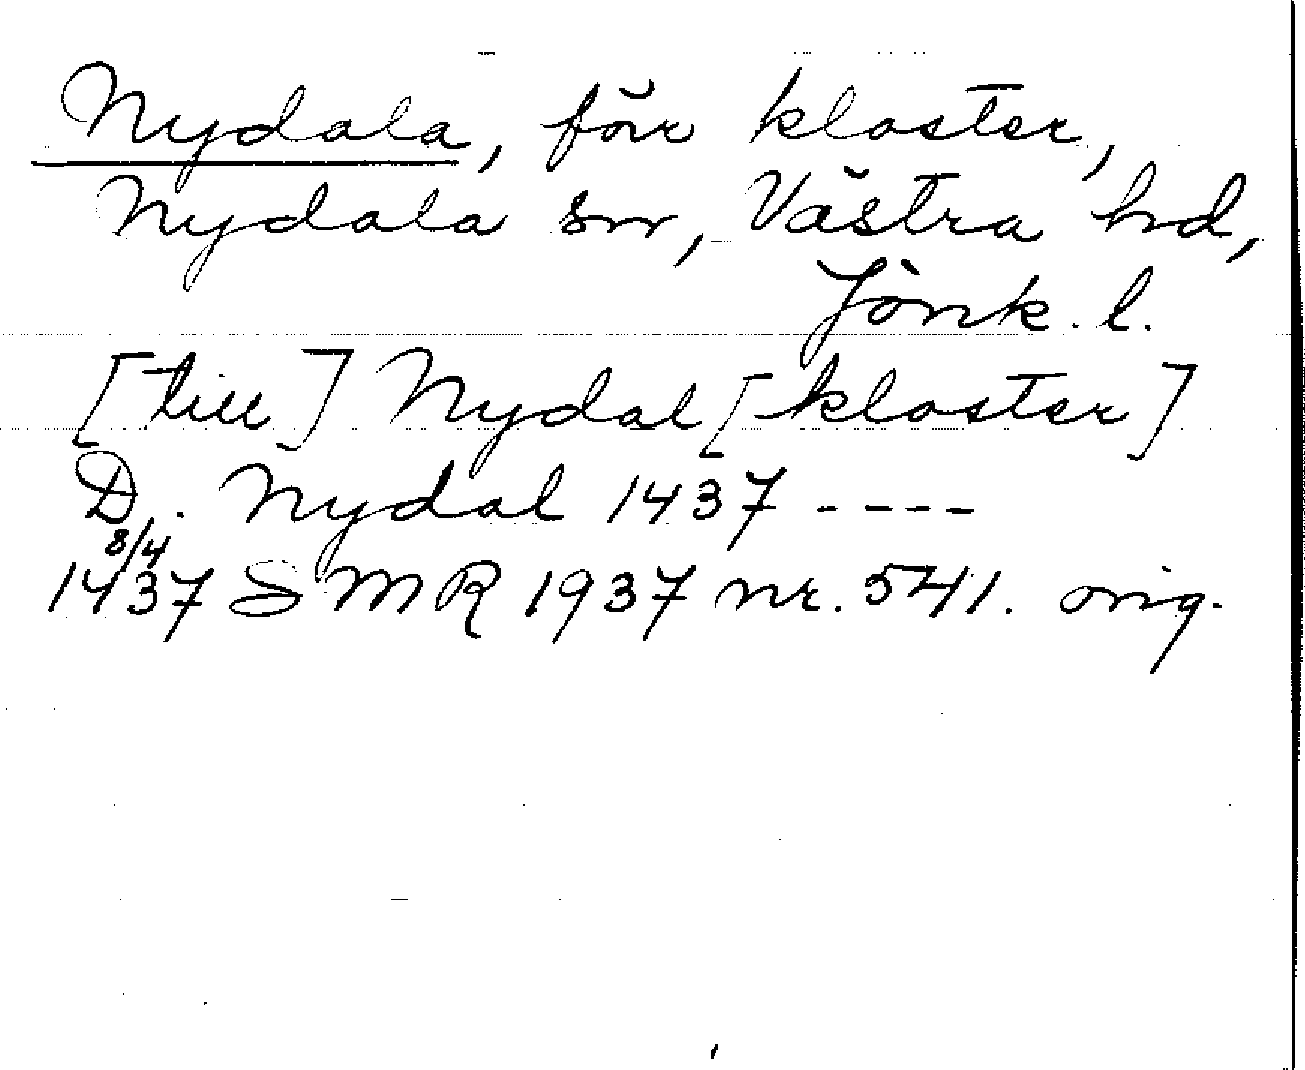 Nydala, förr kloster,
Nydala sn, Västra hd,
Jönk. l.
[till] Nydal [kloster]
D. Nydal 1437 ----
8/4
1437 SMR 1937 nr. 541. orig.